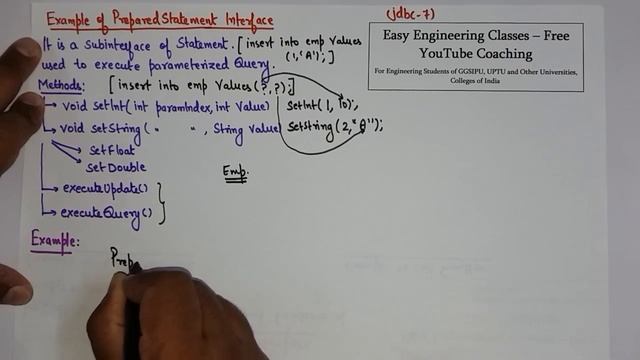 Example of PreparedStatement Interface
(jdbc-7)
It is a Subinterface of Statement. [insert into emp values
(1,'A');]
used to execute parameterized Query.
Methods: [insert into emp values(?,?);]
void setInt(int paramIndex, int value) setInt(1, 10);
void setString( " " , String value) setString(2,"A");
setFloat
setDouble
Emp.
executeUpdate()
executeQuery()
Example:
Prep
Easy Engineering Classes – Free
YouTube Coaching
For Engineering Students of GGSIPU, UPTU and Other Universities,
Colleges of India